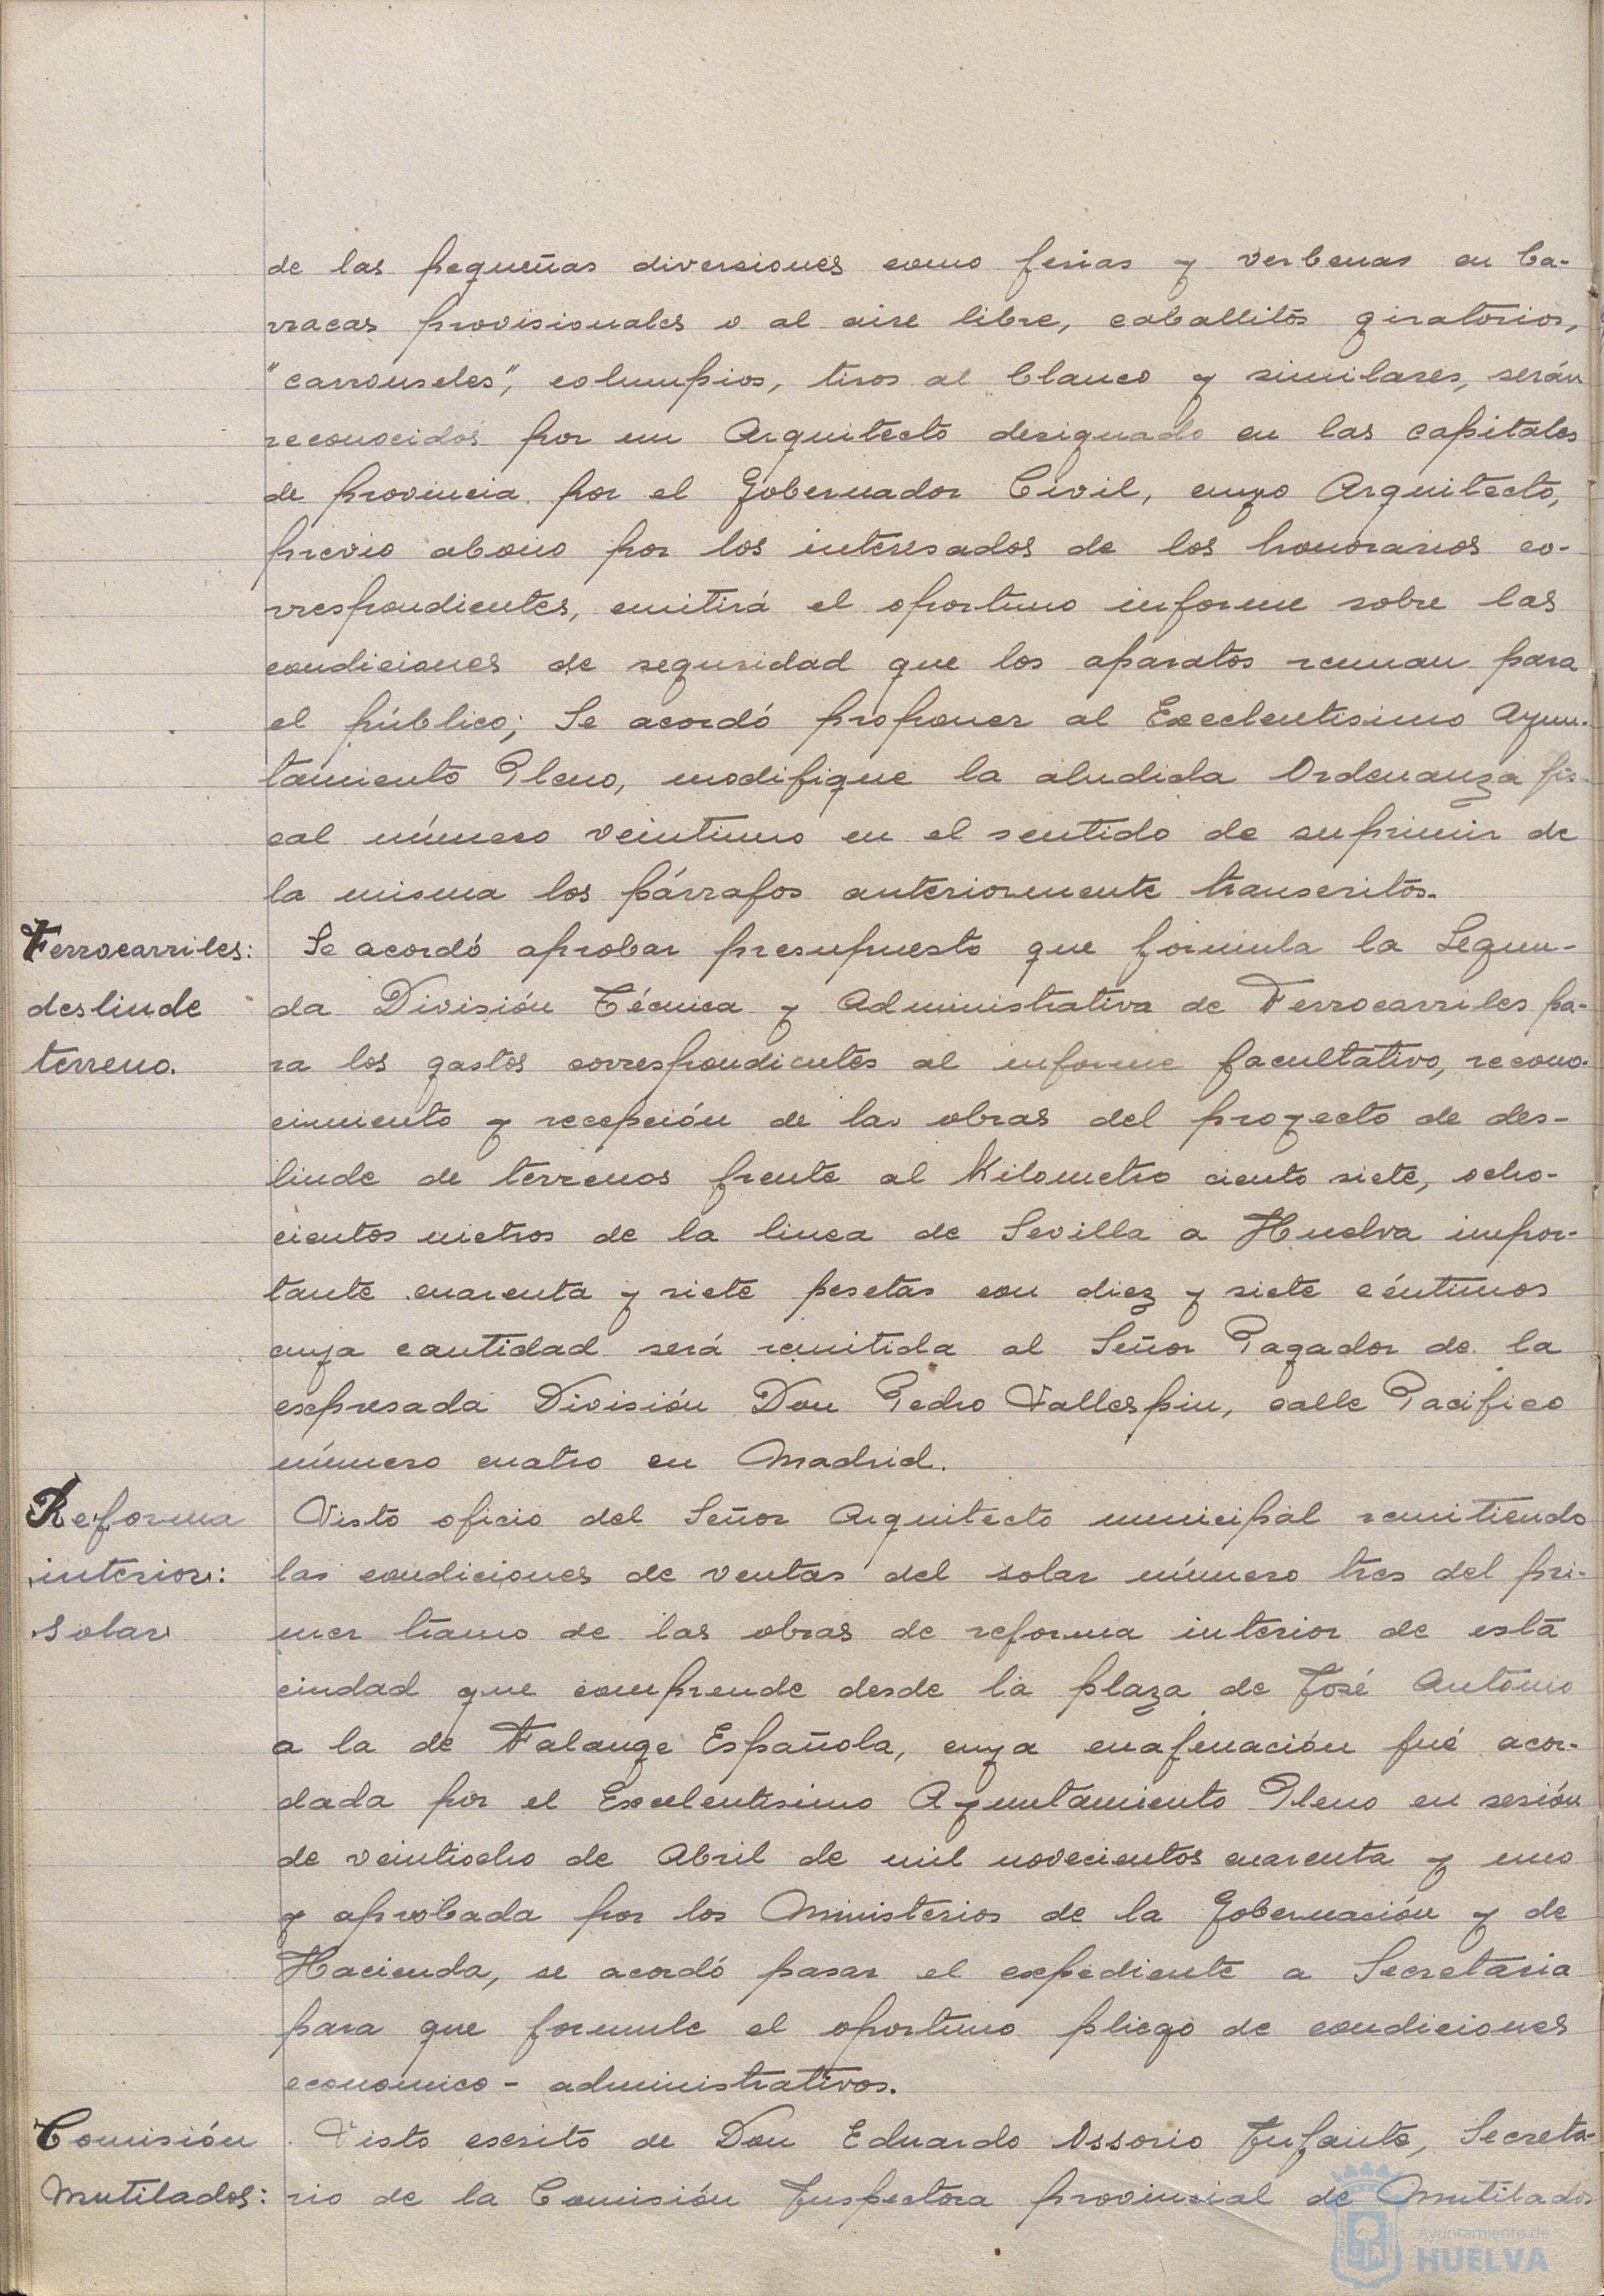 de las pequeñas diversiones como ferias y verbenas en ba-
rracas provisionales o al aire libre, caballitos giratorios,
"carrouseles", columpios, tiros al blanco y similares, serán
reconocidos por un Arquitecto designado en las capitales
de provincia por el Gobernador Civil, cuyo Arquitecto,
previo abono por los interesados de los honorarios co-
rrespondientes, emitirá el oportuno informe sobre las
condiciones de seguridad que los aparatos reunan para
el público; Se acordó proponer al Excelentisimo Ayun-
tamiento Pleno, modifique la aludida Ordenanza fis-
cal número veintiuno en el sentido de suprimir de
la misma los párrafos anteriormente transcritos.
Ferrocarriles:
deslinde
terreno.
Se acordó aprobar presupuesto que formula la Segun-
da División Técnica y Administrativa de Ferrocarriles pa-
ra los gastos correspondientes al informe facultativo, recono-
cimiento y recepción de las obras del proyecto de des-
linde de terrenos frente al Kilometro ciento siete, ocho-
cientos metros de la linea de Sevilla a Huelva impor-
tante cuarenta y siete pesetas con diez y siete céntimos
cuya cantidad será remitida al Señor Pagador de la
expresada División Don Pedro Vallespin, calle Pacífico
número cuatro en Madrid.
Reforma
interior:
solar
Visto oficio del Señor Arquitecto municipal remitiendo
las condiciones de ventas del solar número tres del pri-
mer tramo de las obras de reforma interior de esta
ciudad que comprende desde la plaza de José Antonio
a la de Falange Española, cuya enajenación fué acor-
dada por el Excelentisimo Ayuntamiento Pleno en sesión
de veintiocho de Abril de mil novecientos cuarenta y uno
y aprobada por los Ministerios de la Gobernación y de
Hacienda, se acordó pasar el expediente a Secretaria
para que formule el oportuno pliego de condiciones
economico-administrativos.
Comisión
Mutilados:
Visto escrito de Don Eduardo Ossorio Infante, Secreta-
rio de la Comisión Inspectora provincial de Mutilados
Ayuntamiento de
HUELVA